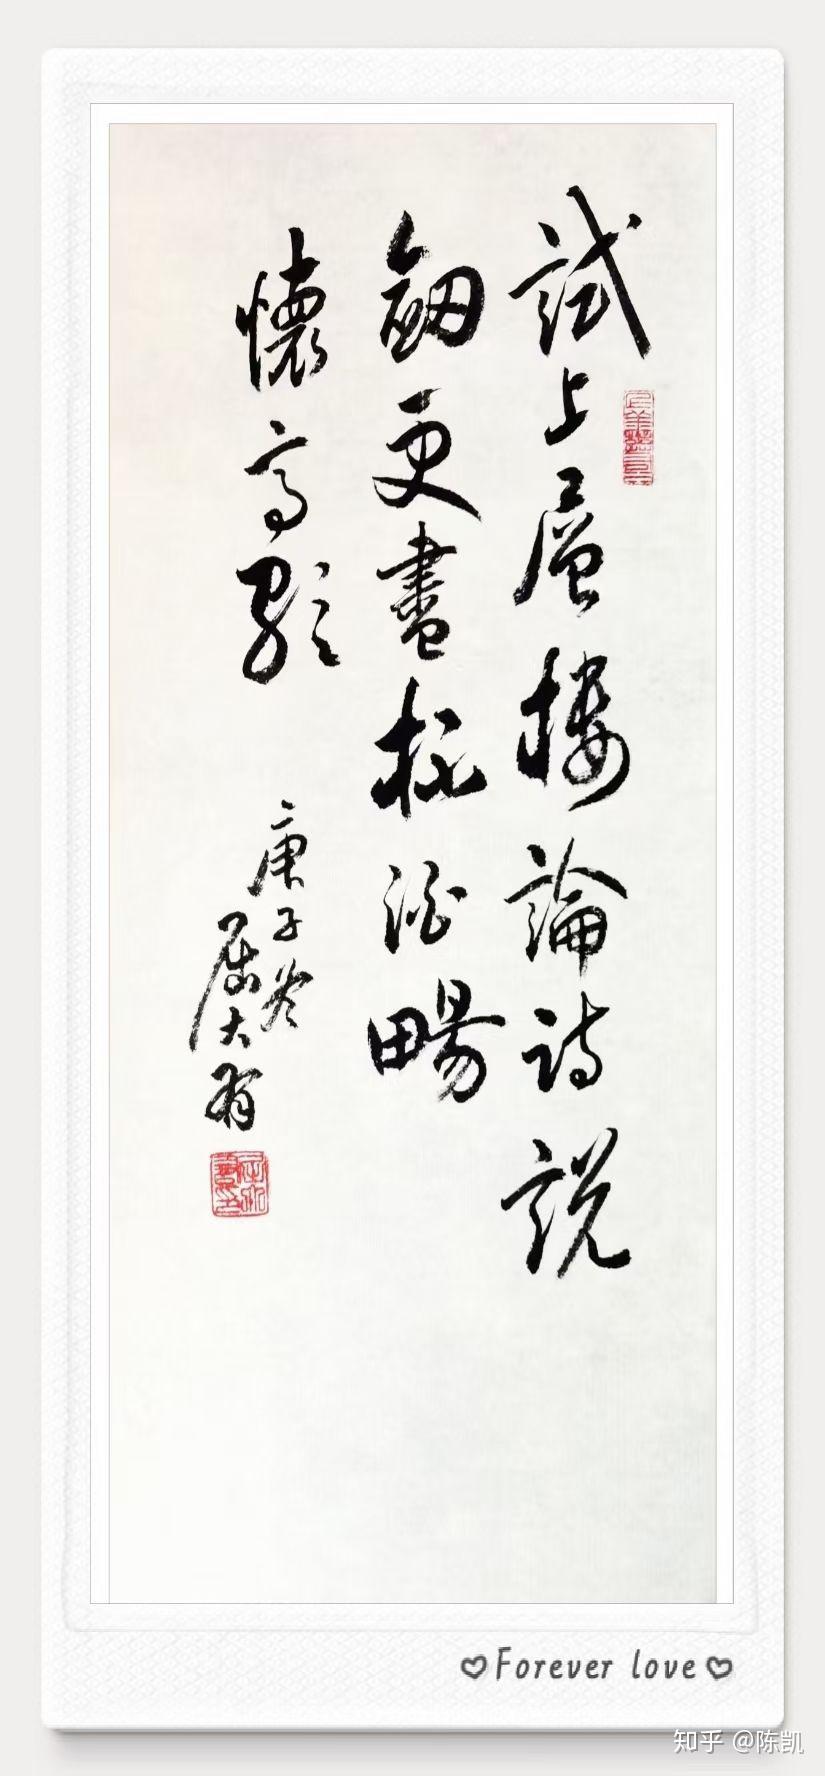 試上層樓論詩說
劒更盡杯酒暢
懷高歌
庚子冬
屈大有
Forever love
知乎 @陈凯